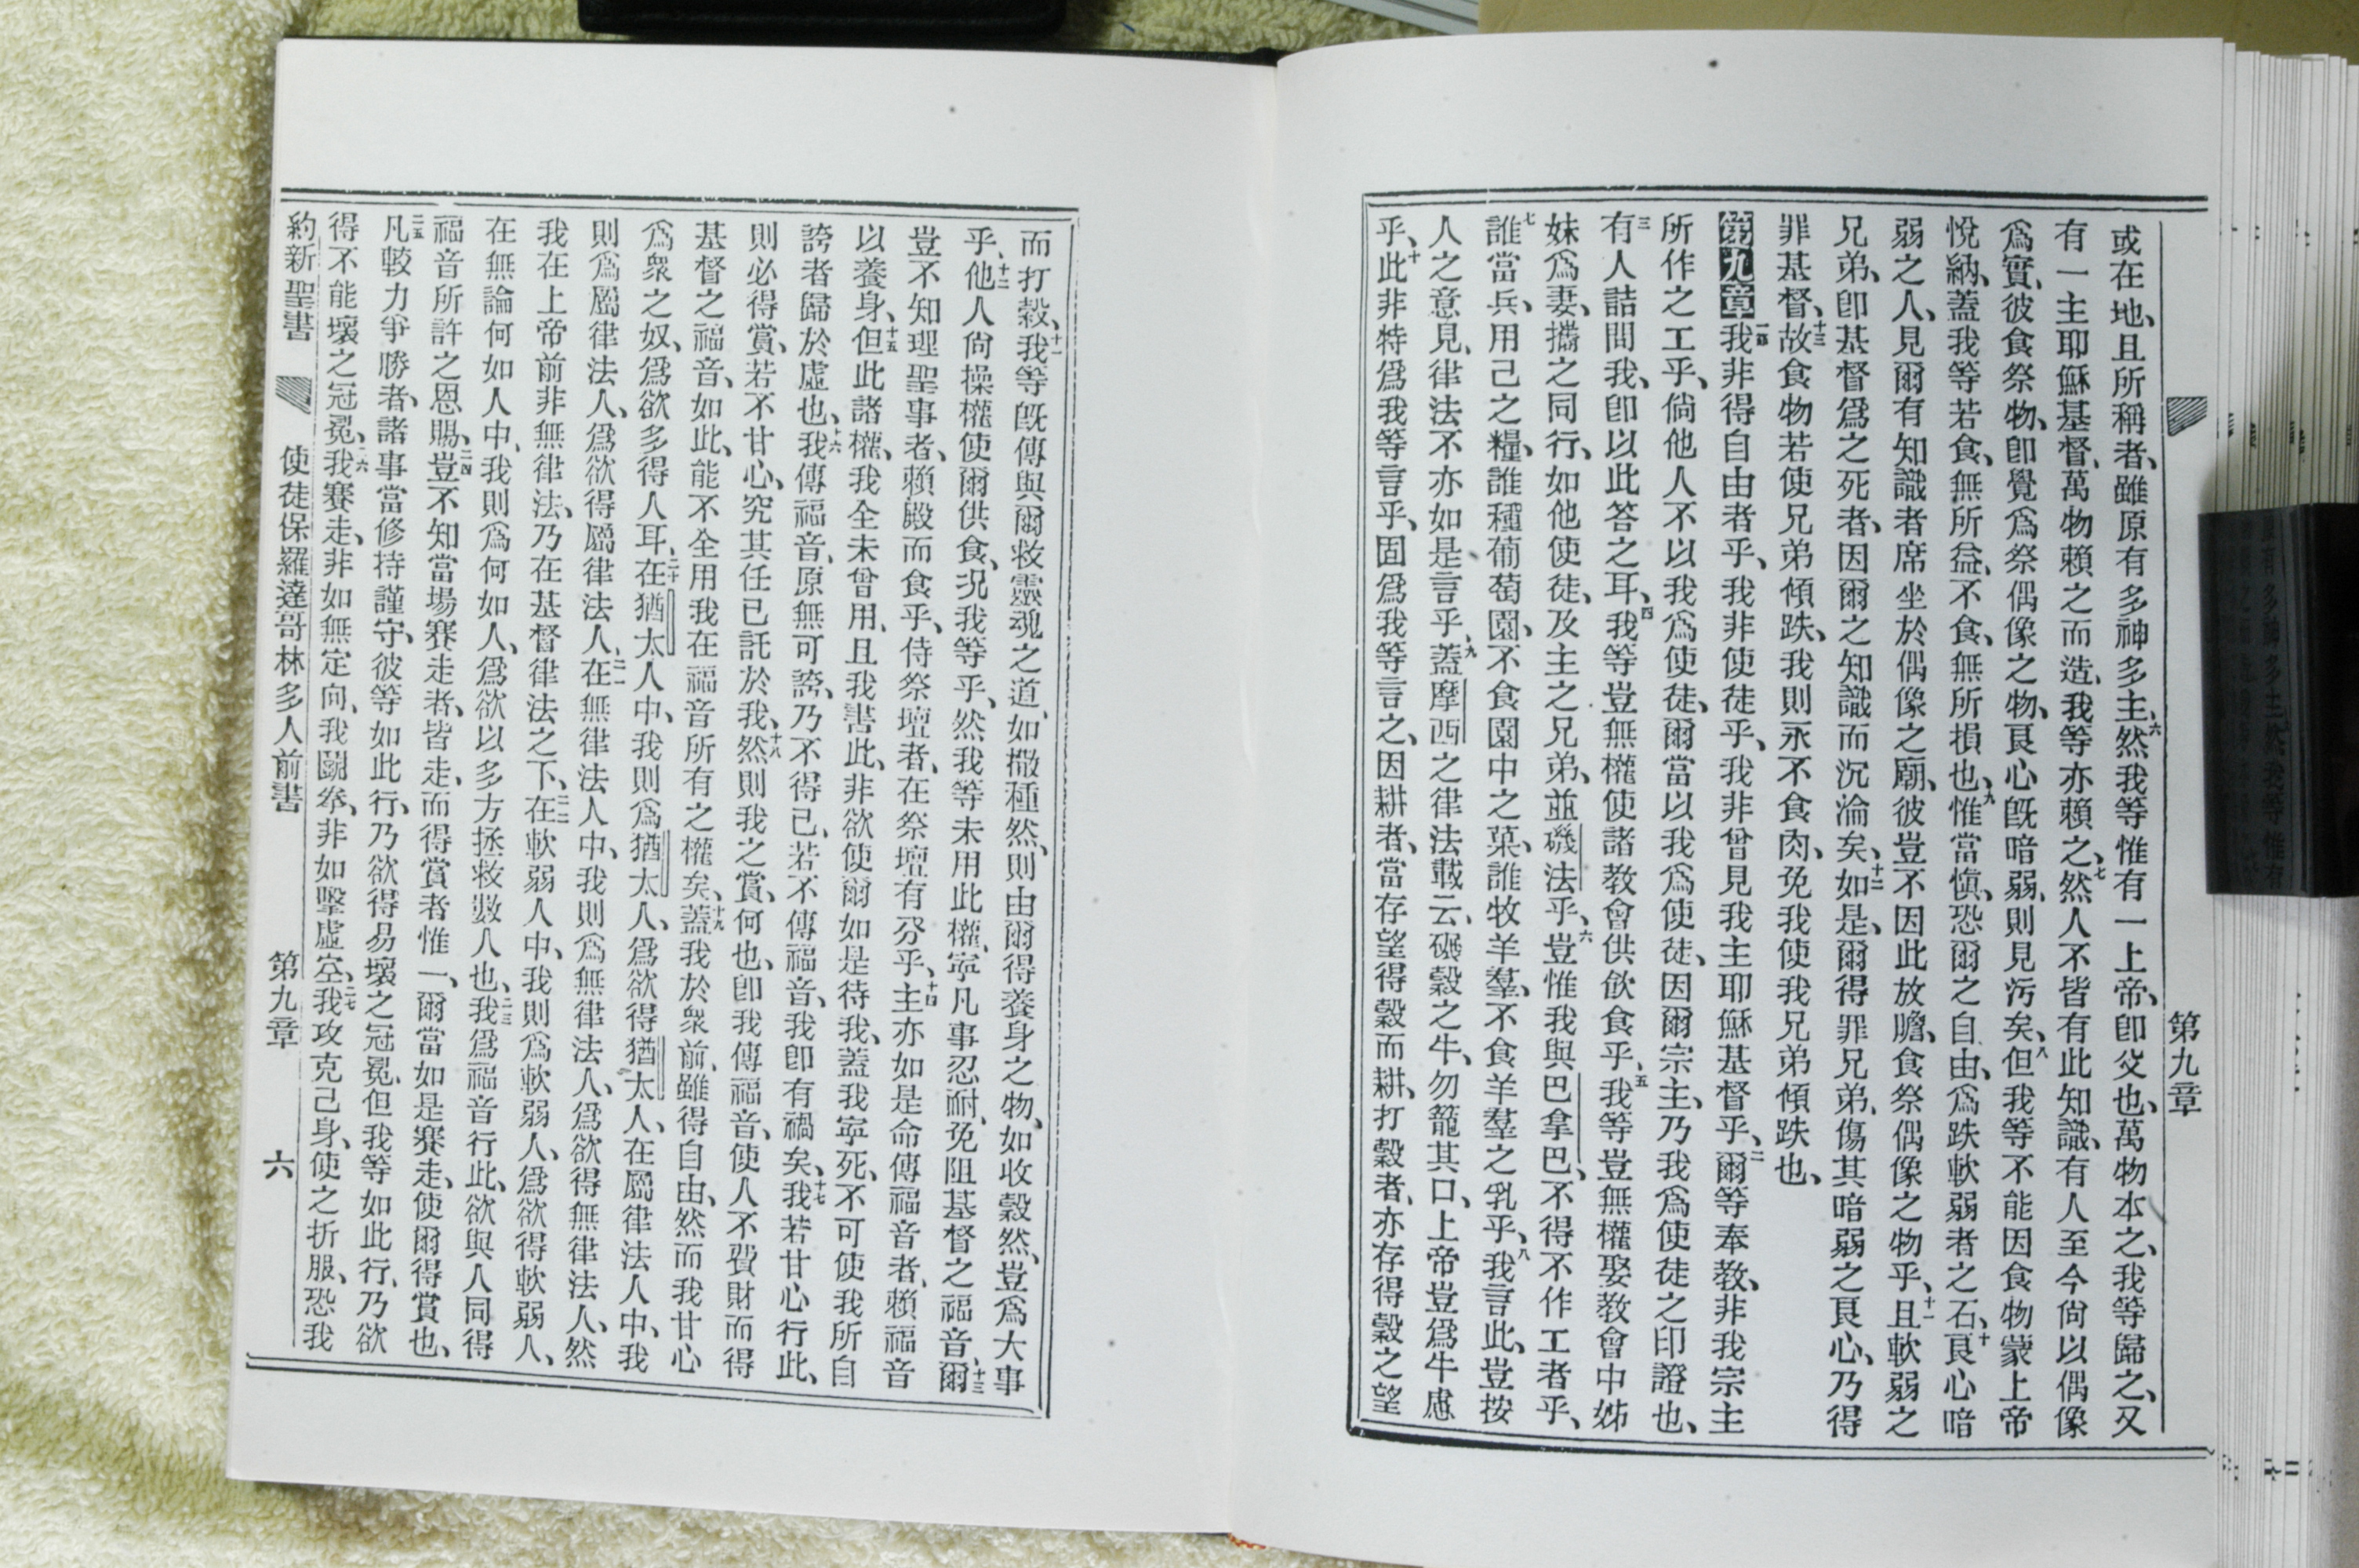 或在地、且所稱者、雖原有多神多主、六然我等惟有一上帝、卽父也、萬物本之、我等歸之、又
有一主耶穌基督、萬物賴之而造、我等亦賴之、七然人不皆有此知識、有人至今尙以偶像
爲實、彼食祭物、卽覺爲祭偶像之物、良心旣暗弱、則見污矣、八但我等不能因食物蒙上帝
悅納、蓋我等若食、無所益、不食、無所損也、九惟當愼、恐爾之自由、爲跌軟弱者之石、十良心暗
弱之人、見爾有知識者席坐於偶像之廟、彼豈不因此放膽、食祭偶像之物乎、十一且軟弱之
兄弟、卽基督爲之死者、因爾之知識而沉淪矣、十二如是、爾得罪兄弟、傷其暗弱之良心、乃得
罪基督、十三故食物若使兄弟傾跌、我則永不食肉、免我使我兄弟傾跌也、
第九章 一節我非得自由者乎、我非使徒乎、我非曾見我主耶穌基督乎、二爾等奉教、非我宗主
所作之工乎、倘他人不以我爲使徒、爾當以我爲使徒、因爾宗主、乃我爲使徒之印證也、
三有人詰問我、卽以此答之耳、四我等豈無權使諸教會供飮食乎、五我等豈無權娶教會中姊
妹爲妻、攜之同行、如他使徒、及主之兄弟、並磯法乎、六豈惟我與巴拿巴、不得不作工者乎、
七誰當兵、用己之糧、誰種葡萄園、不食園中之菓、誰牧羊羣、不食羊羣之乳乎、八我言此、豈按
人之意見、律法不亦如是言乎、九蓋摩西之律法載云、碾穀之牛、勿籠其口、上帝豈爲牛慮
乎、十此非特爲我等言乎、固爲我等言之、因耕者、當存望得穀而耕、打穀者、亦存得穀之望
第九章
而打穀、十一我等旣傳與爾救靈魂之道、如撒種然、則由爾得養身之物、如收穀然、豈爲大事
乎、十二他人尙操權使爾供食、況我等乎、然我等未用此權、寧凡事忍耐、免阻基督之福音、十三爾
豈不知理聖事者、賴殿而食乎、侍祭壇者、在祭壇有分乎、十四主亦如是命傳福音者、賴福音
以養身、十五但此諸權、我全未曾用、且我書此、非欲使爾如是待我、蓋我寧死、不可使我所自
誇者歸於虛也、十六我傳福音、原無可誇、乃不得已、若不傳福音、我卽有禍矣、十七我若甘心行此、
則必得賞、若不甘心、究其任已託於我、十八然則我之賞、何也、卽我傳福音、使人不費財而得
基督之福音、如此、能不全用我在福音所有之權矣、十九蓋我於衆前、雖得自由、然而我甘心
爲衆之奴、爲欲多得人耳、二十在猶太人中、我則爲猶太人、爲欲得猶太人、在屬律法人中、我
則爲屬律法人、爲欲得屬律法人、二一在無律法人中、我則爲無律法人、爲欲得無律法人、然
我在上帝前非無律法、乃在基督律法之下、二二在軟弱人中、我則爲軟弱人、爲欲得軟弱人、
在無論何如人中、我則爲何如人、爲欲以多方拯救數人也、二三我爲福音行此、欲與人同得
福音所許之恩賜、二四豈不知當場賽走者、皆走、而得賞者惟一、爾當如是賽走、使爾得賞也、
二五凡較力爭勝者、諸事當修持謹守、彼等如此行、乃欲得易壞之冠冕、但我等如此行、乃欲
得不能壞之冠冕、二六我賽走、非如無定向、我鬭拳、非如擊虛空、二七我攻克己身、使之折服、恐我
約新聖書 使徒保羅達哥林多人前書 第九章 六